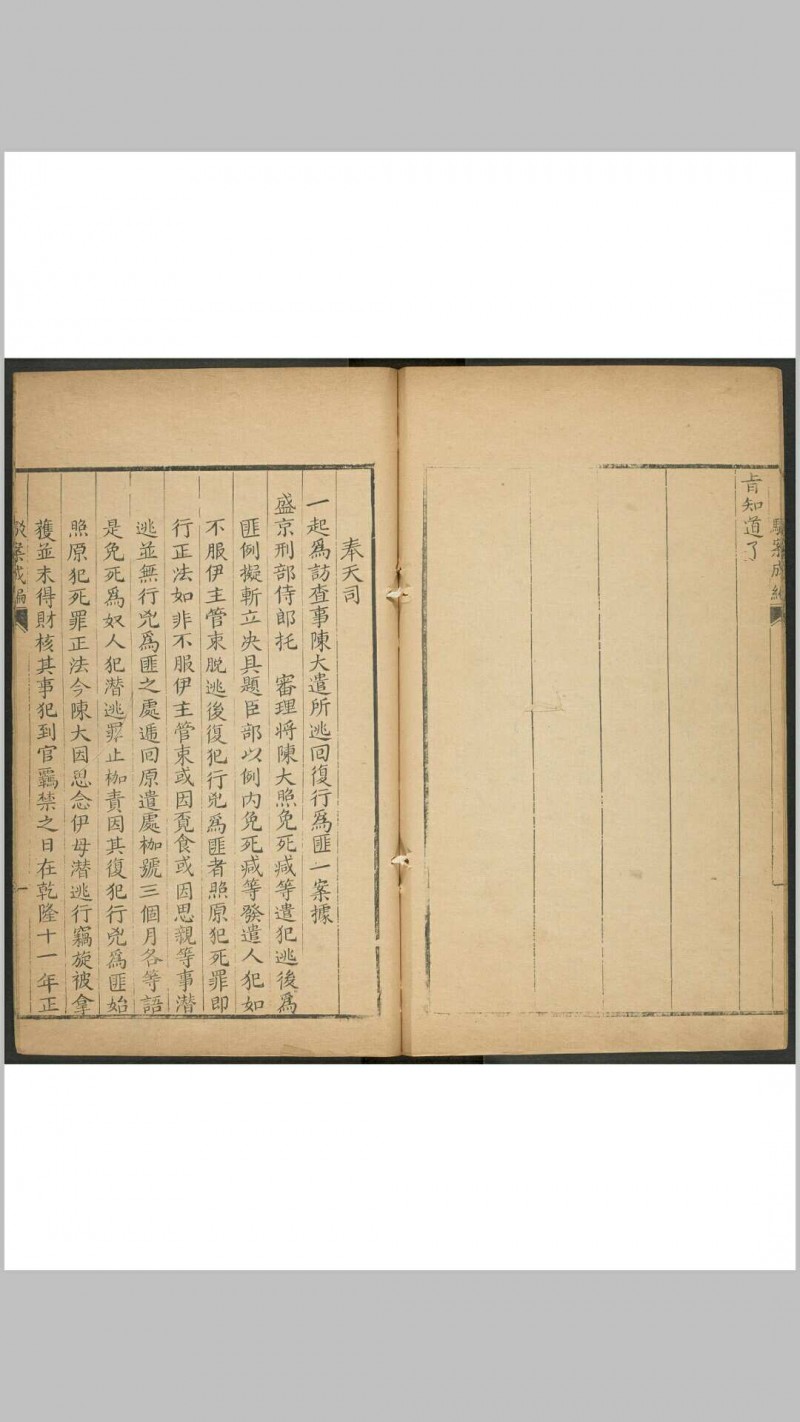 旨知道了
奉天司
一起為訪查事陳大遣所逃回復行為匪一案據
盛京刑部侍郎托　審理將陳大照免死减等遣犯逃後為
匪例擬斬立决具題臣部以例内免死减等發遣人犯如
不服伊主管束脱逃後復犯行兇為匪者照原犯死罪即
行正法如非不服伊主管束或因覔食或因思親等事潜
逃並無行兇為匪之處逓回原遣處枷號三個月各等語
是免死為奴人犯潜逃罪止枷責因其復犯行兇為匪始
照原犯死罪正法今陳大因思念伊母潜逃行竊旋被拿
獲並未得財核其事犯到官羈禁之日在乾隆十一年正